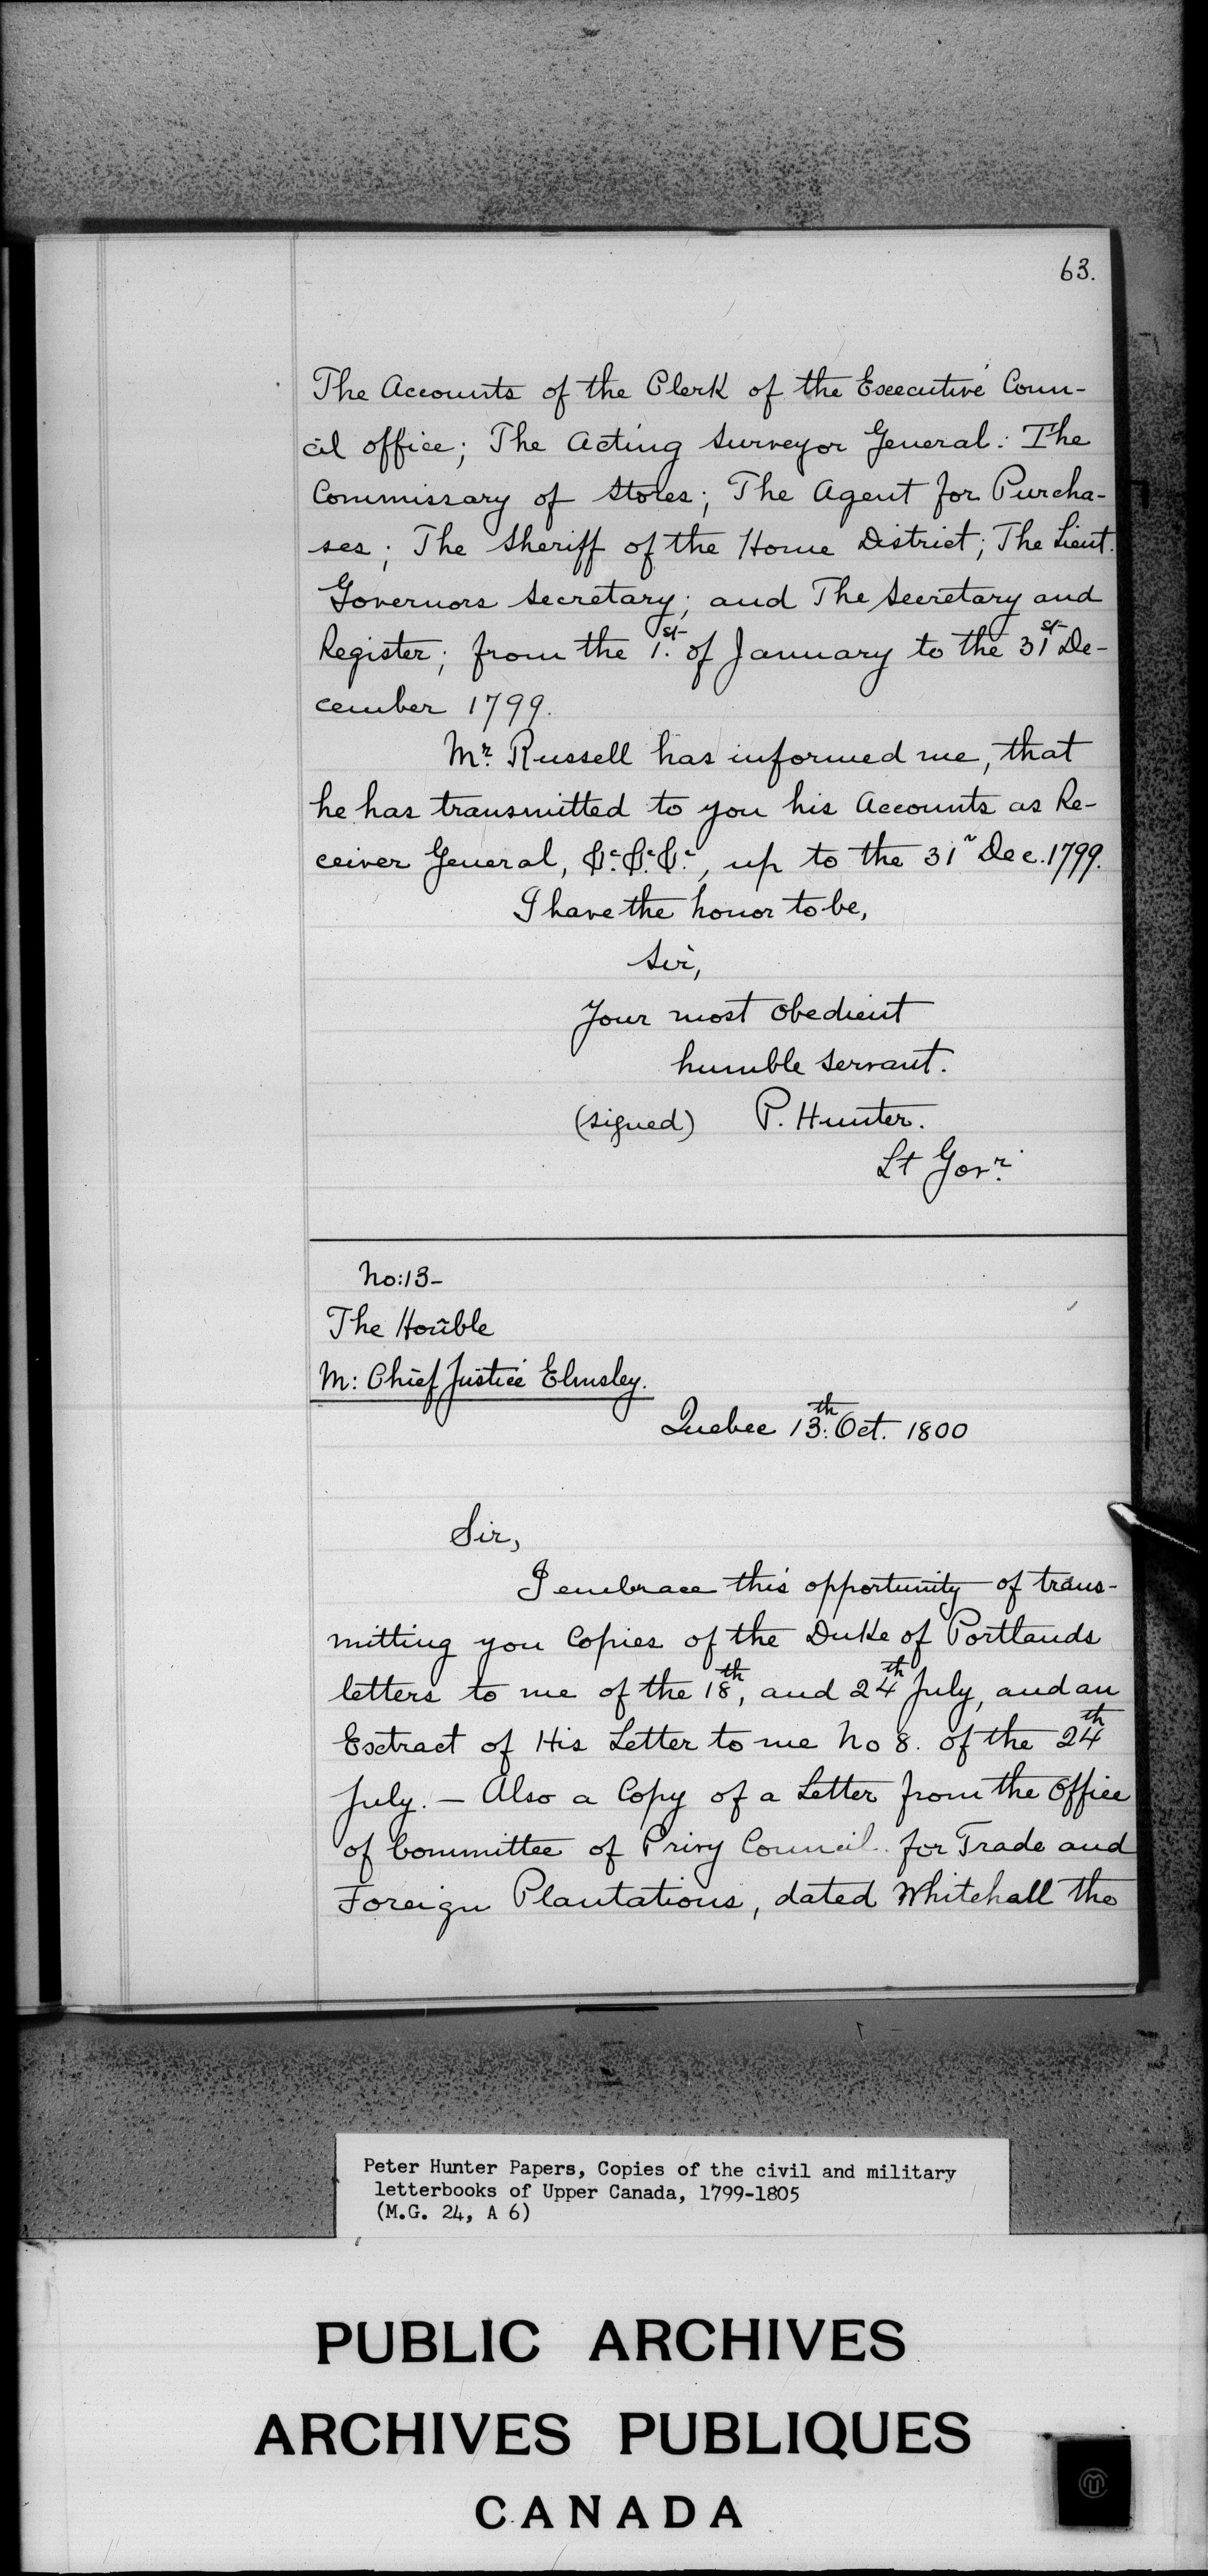 63.
The Accounts of the Clerk of the Executive Coun-
cil office; The Acting Surveyor General: The
Commissary of Stores; The Agent for Purcha-
ses; The Sheriff of the Home District; The Lieut.
Governors Secretary; and The Secretary and
Register; from the 1.st of January to the 31st De-
cember 1799.
Mr. Russell has informed me, that
he has transmitted to you his Accounts as Re-
ceiver General, &c. &c. &c., up to the 31 Dec. 1799.
I have the honor to be,
Sir,
Your most obedient
humble servant.
(signed) P. Hunter.
Lt Govr.
No: 13-
The Honble
M: Chief Justice Elmsley.
Quebec 13th: Oct. 1800
Sir,
I embrace this opportunity of trans-
mitting you Copies of the Duke of Portlands
letters to me of the 18th, and 24th July, and an
Extract of His Letter to me No 8. of the 24th
July. — Also a Copy of a Letter from the Office
of Committee of Privy Council for Trade and
Foreign Plantations, dated Whitehall the
Peter Hunter Papers, Copies of the civil and military
letterbooks of Upper Canada, 1799-1805
(M.G. 24, A 6)
PUBLIC ARCHIVES
ARCHIVES PUBLIQUES
CANADA